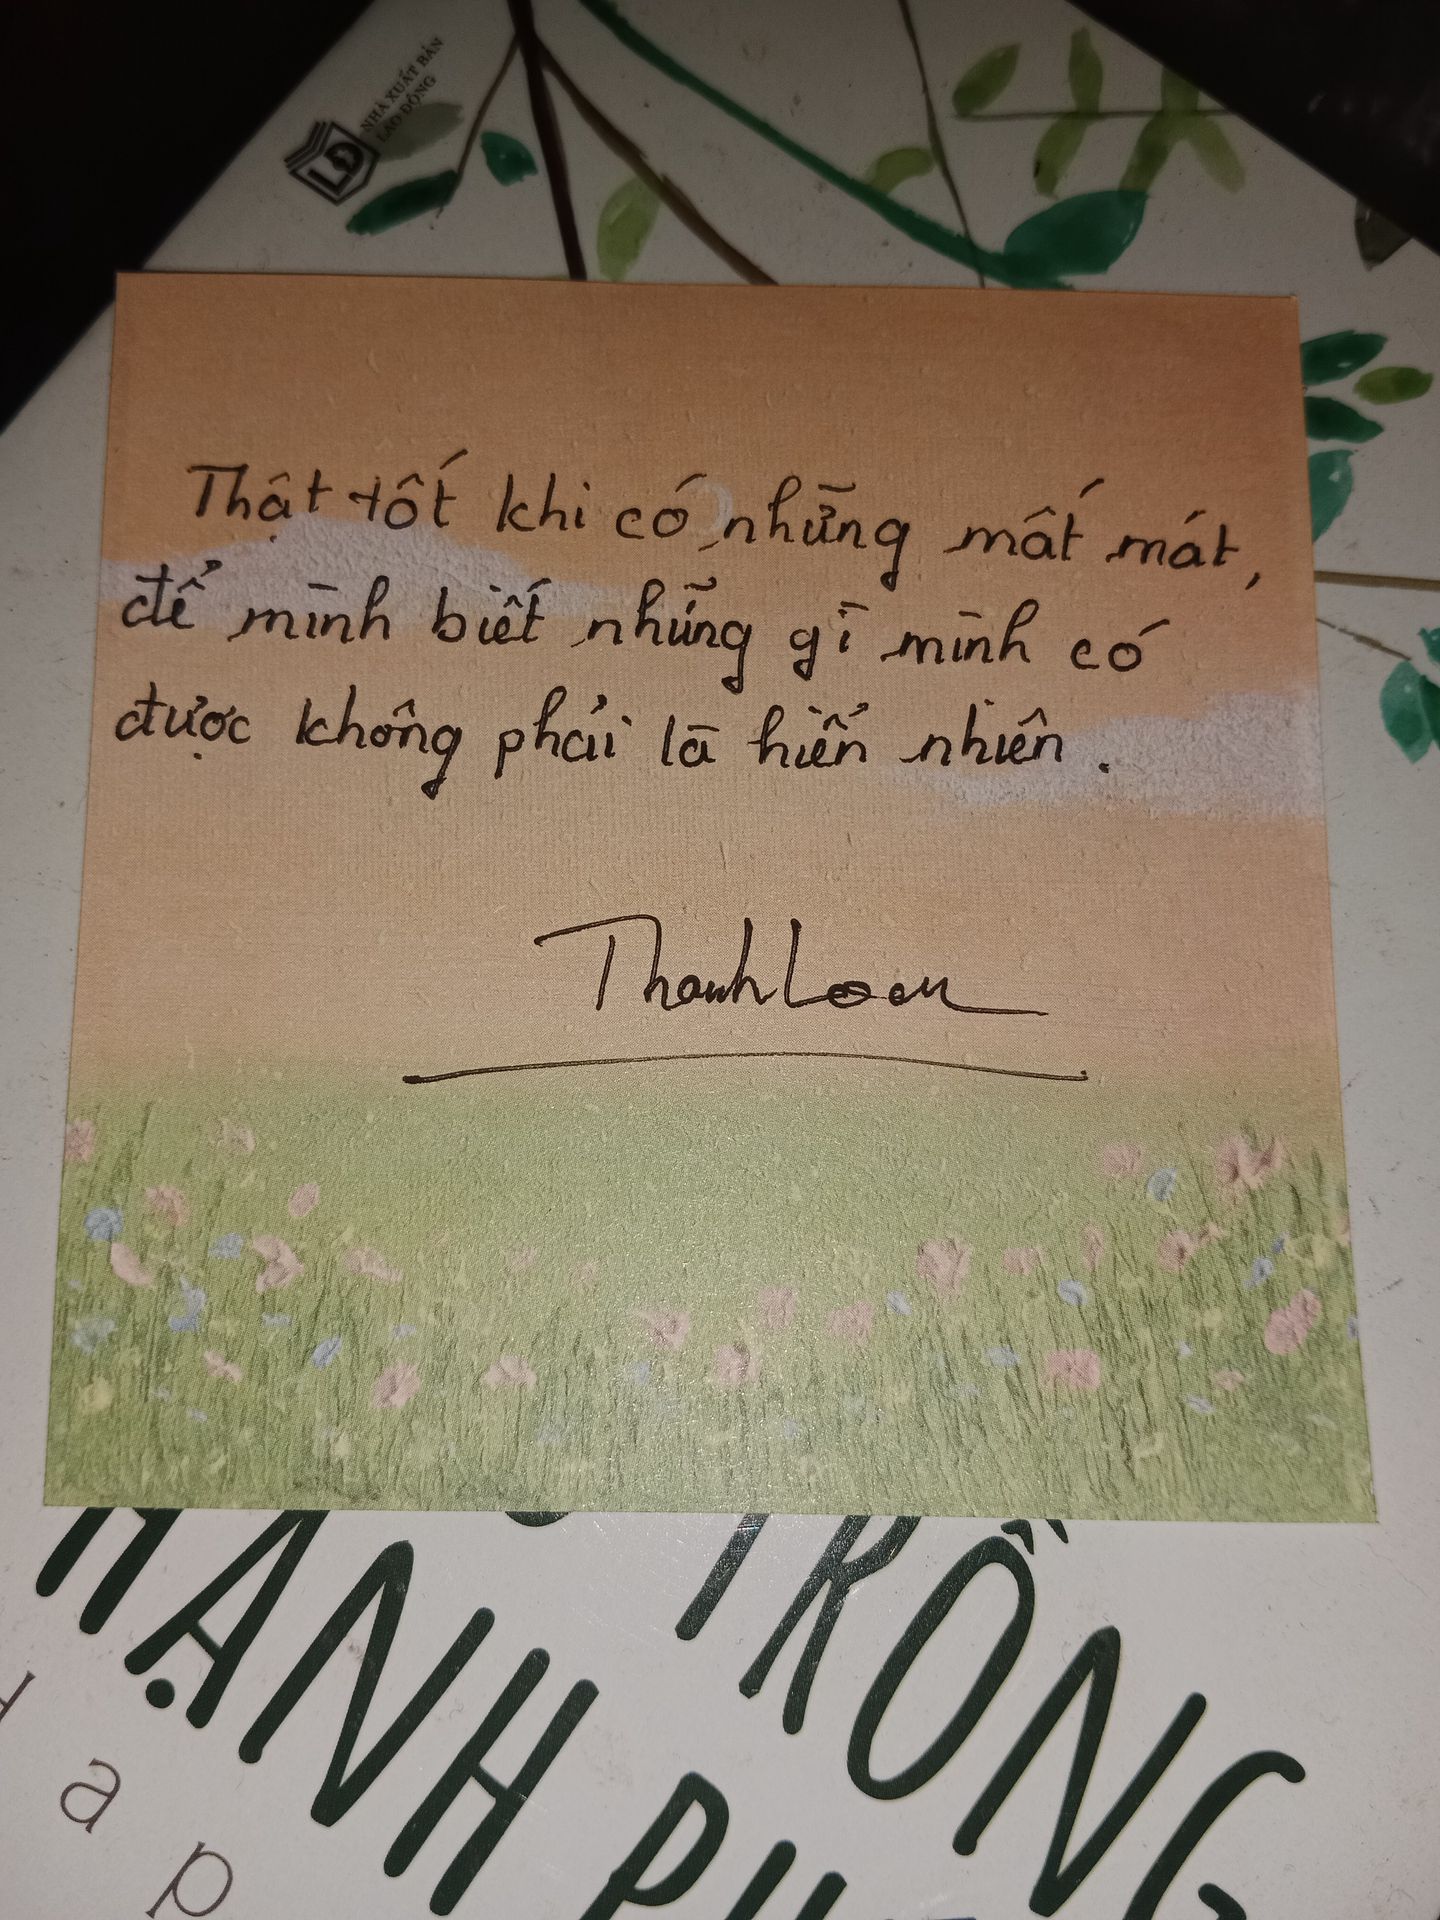 NHÀ XUẤT BẢN
LAO ĐỘNG
LĐ
Thật tốt khi có những mất mát,
để mình biết những gì mình có
được không phải là hiển nhiên.
Thanh Loan
TRỒNG
HẠNH PH
a
p